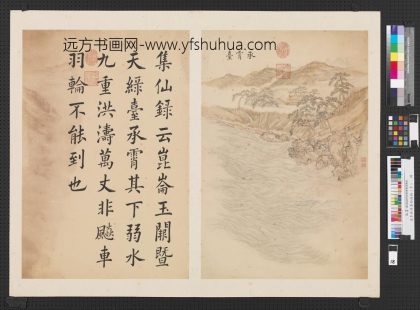 远方书画网-www.yfshuhua.com
承霄臺
集仙録云崑崙玉闕暨
天綠臺承霄其下弱水
九重洪濤萬丈非飈車
羽輪不能到也